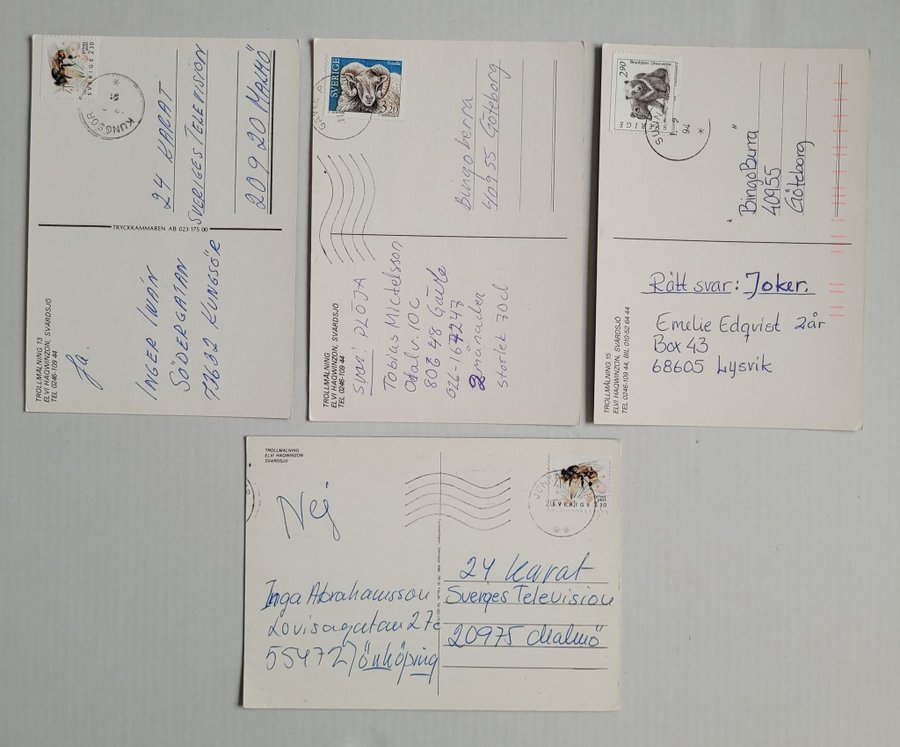 SVERIGE 2.30
KUNGSÖR
24 KARAT
SVERIGES TELEVISION
209 20 MALMÖ
TRYCKKAMMAREN AB 023-175 00
TROLLMÅLNING 13
ELVI HAQWINZON, SVÄRDSJÖ
TEL 0246-109 44
Ja.
INGER IWAN
SÖDERGATAN
73632 KUNGSÖR
SVERIGE
3.20
Bingo berra
409 55 Göteborg
TROLLMÅLNING
ELVI HAQWINZON, SVÄRDSJÖ
TEL 0246-109 44
svar: PLÖJA
Tobias Michelsson
Odalv. 10 C
806 48 Gävle
026-167247
2 månader
storlek 70cl
2.90
SVERIGE
94
"BingoBerra"
40955
Göteborg
TROLLMÅLNING 15
ELVI HAQWINZON, SVÄRDSJÖ
TEL 0246-109 44, BIL 010-52 64 44
Rätt svar: Joker.
Emelie Edqvist 2år
Box 43
68605 Lysvik
TROLLMÅLNING
ELVI HAQWINZON
SVÄRDSJÖ
SVERIGE 2.30
Nej
24 Karat
Sverges Television
20975 Malmö
Inga Abrahamsson
Lovisagatan 27c
55472 Jönköping